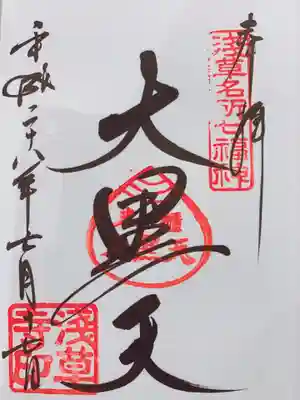 奉拝
淺草名所七福神
大黒天
平成二十八年七月十七日
淺草寺印